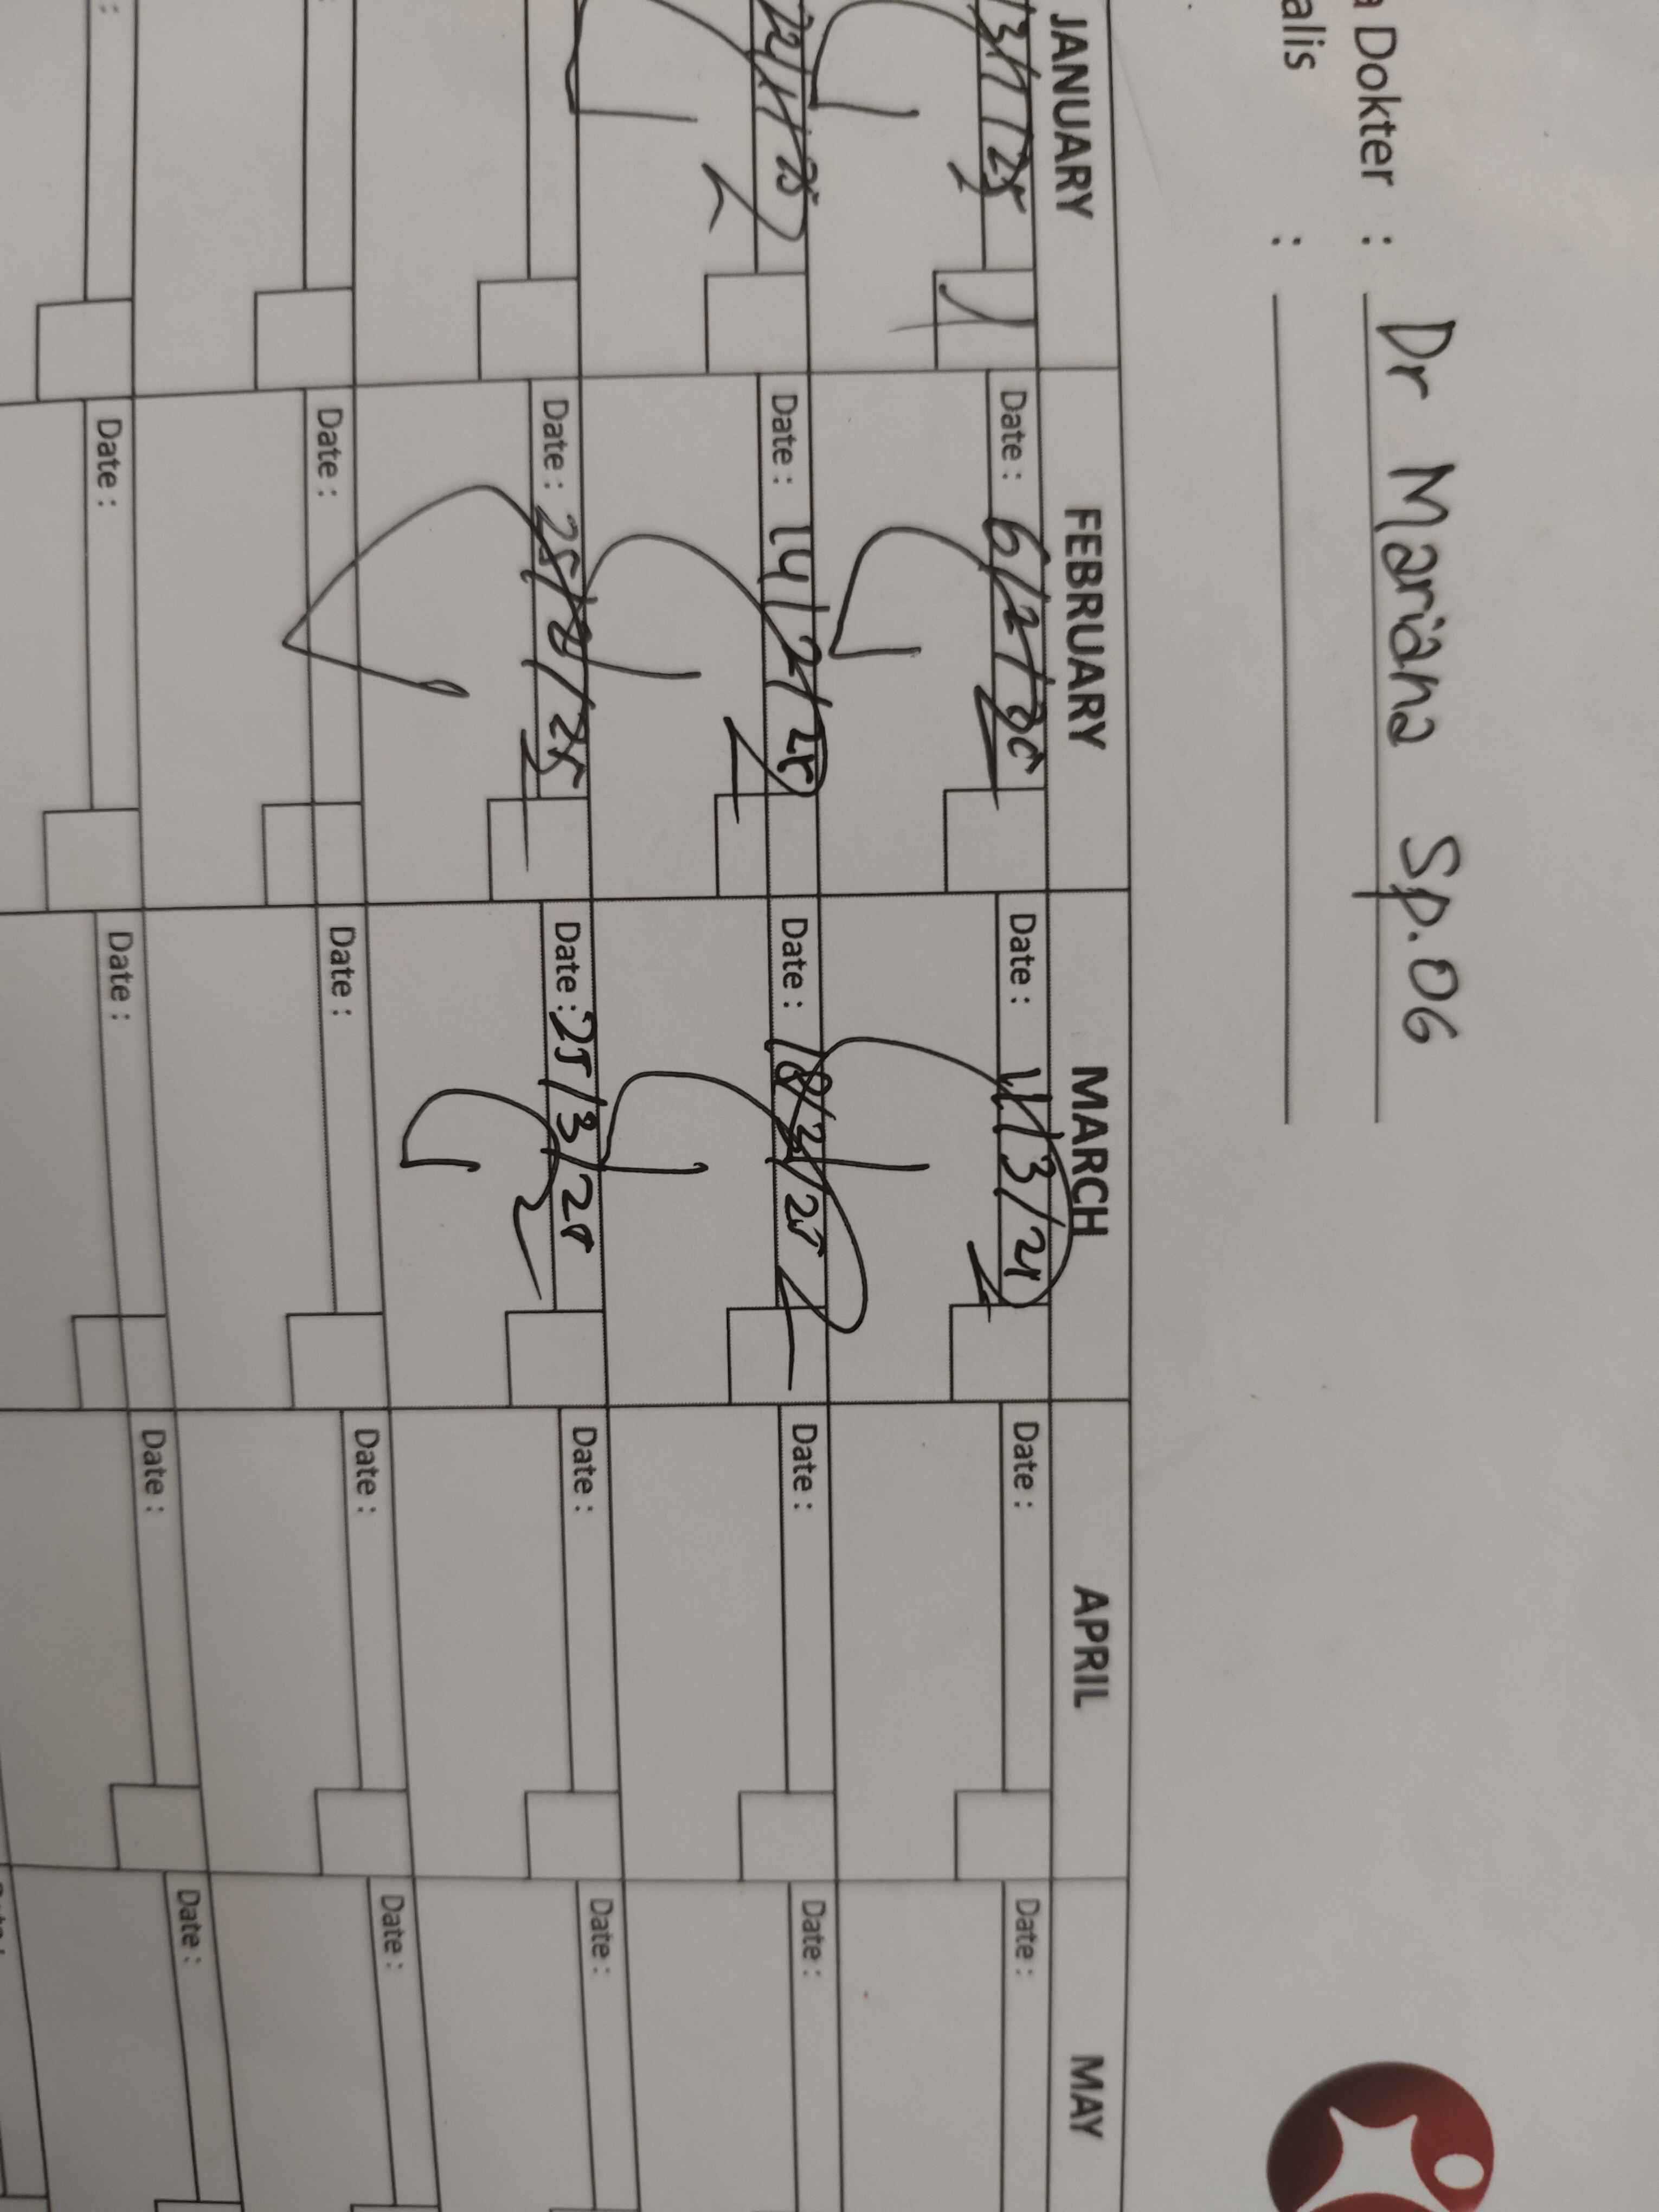 Dokter : Dr Mariana Sp.OG
alis :
JANUARY FEBRUARY MARCH APRIL MAY
Date : 6/2/25 Date : 11/3/25 Date : Date :
22/1/25 Date : 14/2/25 Date : 18/3/25 Date : Date :
Date : 25/2/25 Date : 25/3/25 Date : Date :
: Date : Date : Date : Date :
: Date : Date : Date : Date :